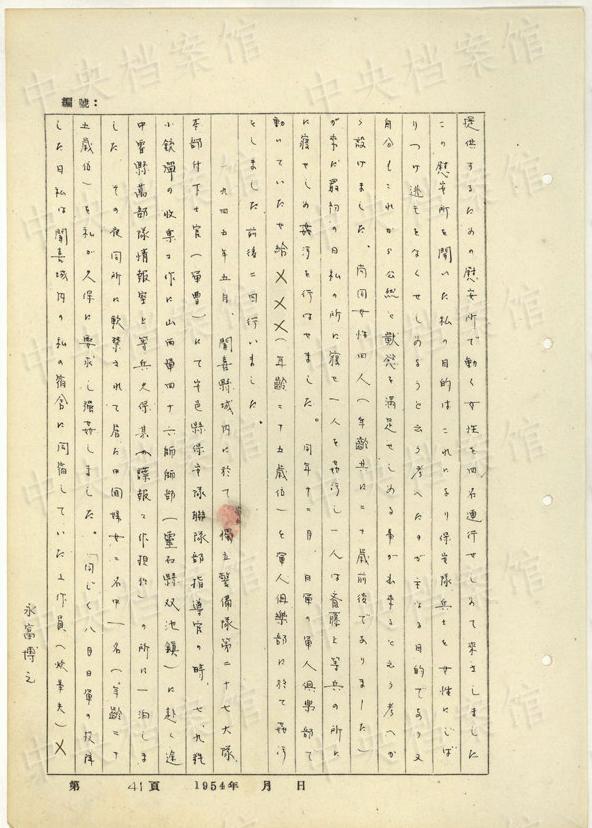 編號:
提供するための慰安所で働く女性を四名連行せしめて来さしました
この慰安所を開いた私の目的はこれにより保安隊兵士を女性にしば
りつけ逃亡をなくせしめようと云う考へたのが主なる目的であり又
自分もこれから公然と獣慾を満足せしめる事が出来ると云う考へか
ら設けました。尚同女性四人(年齢共に二十歳前後でありました)
が来た最初の日私の所に寝せ一人を姦淫し一人は斎藤上等兵の所に
に寝せしめ姦淫を行はせました。同年十二月、日軍の軍人倶楽部で
働いていた女給XXX(年齢二十五歳位)を軍人倶楽部に於て姦淫
をしました前後二回行いました。
一九四五年五月、聞喜縣城内に於て獨立警備隊第二十七大隊
本部付下士官(軍曹)にて安邑縣保安隊聯隊部指導官の時、七、九粍
小銃彈の收集工作に山西軍四十六師師部(靈石縣双池鎮)に赴く途
中霍縣萬部隊情報室上等兵久保某(諜報工作担任)の所に一泊しま
した その夜同所に軟禁されて居た中國婦女二名中一名(年齢二十
五歳位)を私が久保に要求し强姦しました。同じく八月日軍の投降
した日私は聞喜城内の私の宿舎に同宿していた工作員(炊事夫)X
永富博之
第 41頁 1954年 月 日
中央档案馆